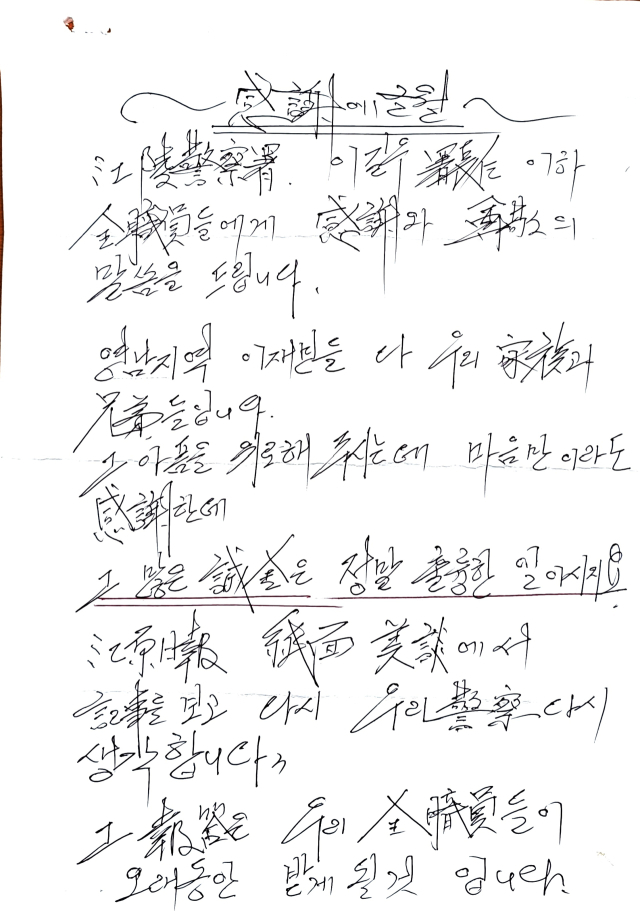 感謝에 글월
江陵警察署. 이길우 署長님 이하
全職員들에게 感謝와 尊敬의
말씀을 드립니다.
영남지역 이재민들 다 우리 家族과
兄弟들입니다.
그 아픔을 위로해 주시는데 마음만이라도
感謝한데
그 많은 誠金은 정말 훌륭한 일이시지요.
江原日報 紙面 美談에서
記事를 보고 다시 우리 警察 다시
생각합니다,
그 報答은 우리 全職員들이
오래동안 받게 될것 입니다.